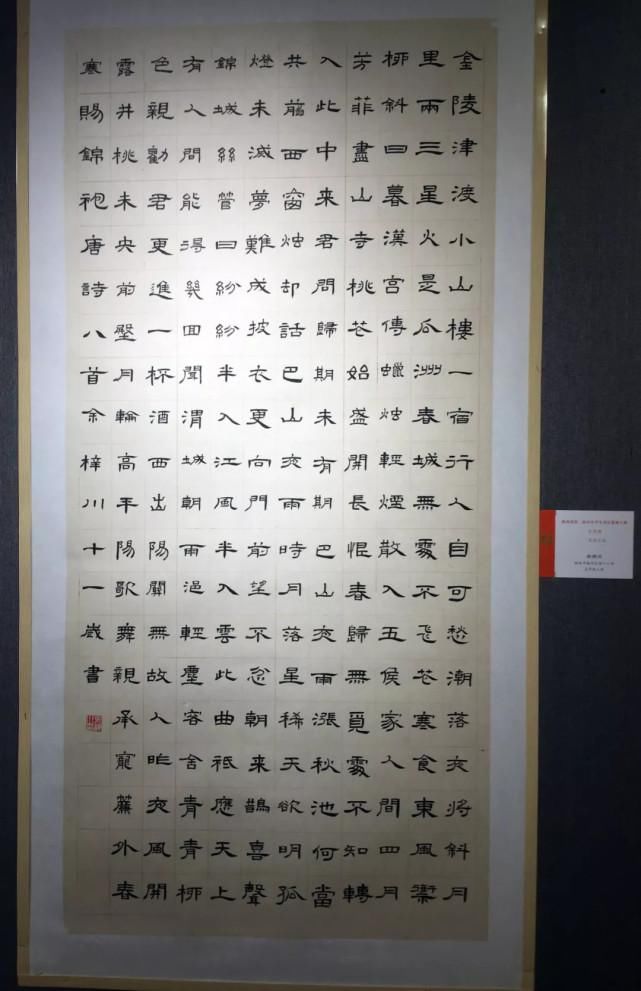 金陵津渡小山樓一宿行人自可愁潮落夜將斜月
里兩三星火是瓜洲春城無處不飛花寒食東風御
柳斜日暮漢宮傳蠟烛輕煙散入五侯家人間四月
芳菲盡山寺桃花始盛開長恨春歸無覓處不知轉
入此中来君問歸期未有期巴山夜雨漲秋池何當
共剪西窗烛却話巴山夜雨時月落星稀天欲明孤
燈未滅夢難成披衣更向門前望不忿朝来鵲喜聲
錦城絲管日紛紛半入江風半入雲此曲祇應天上
有人間能得幾回聞渭城朝雨浥輕塵客舍青青柳
色親勸君更進一杯酒西出陽關無故人昨夜風開
露井桃未央前壂月輪高平陽歌舞親承寵簾外春
寒賜錦袍唐詩八首余梓川十一歲書